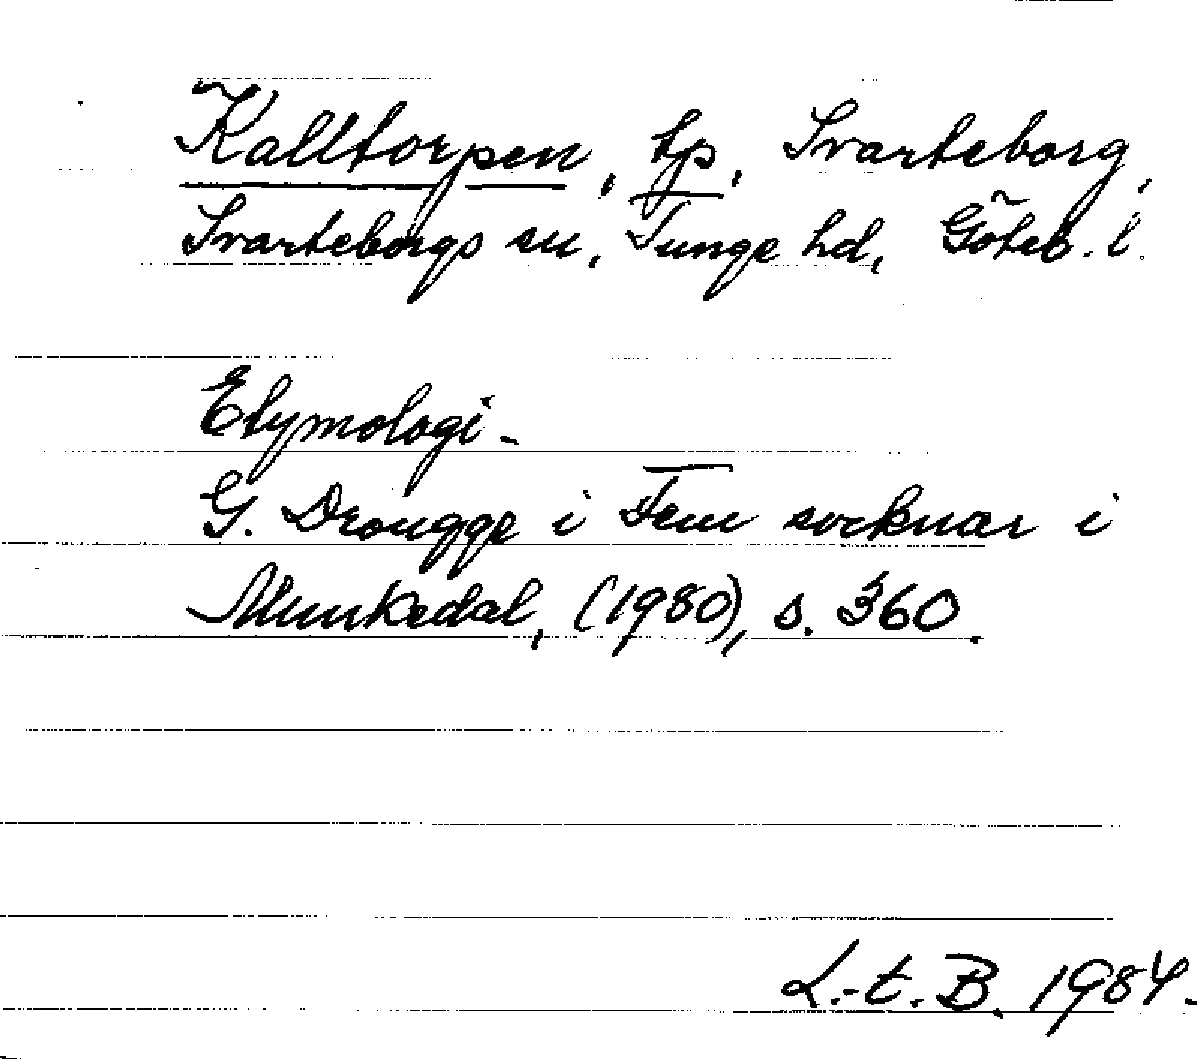 Kalltorpen, tp, Svarteborg,
Svarteborgs sn, Tunge hd, Göteb. l.
Etymologi.
G. Drougge i Fem socknar i
Munkedal, (1980), s. 360.
L.-t. B. 1984.